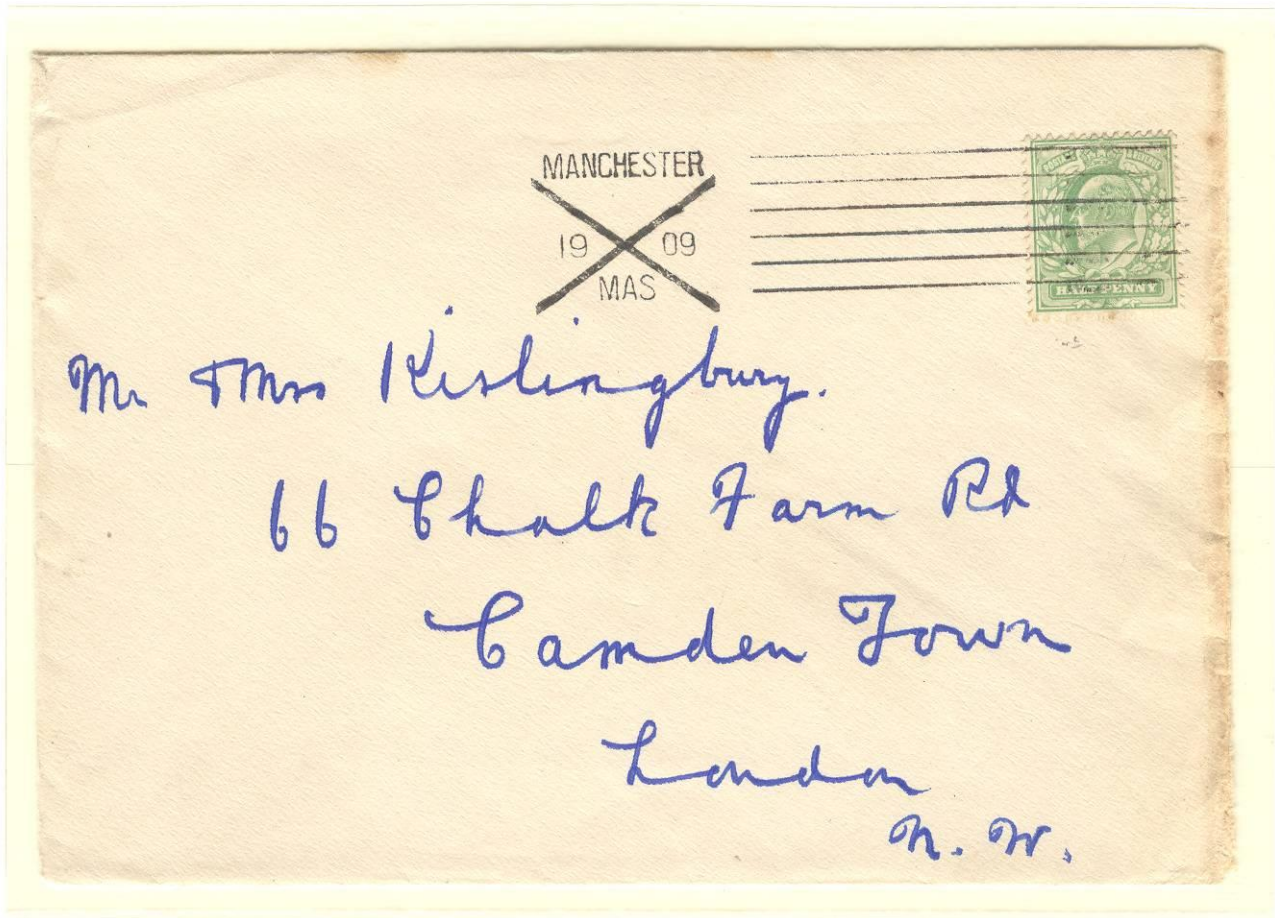 MANCHESTER
19 09
MAS
POSTAGE & REVENUE
HALFPENNY
Mr & Mrs Kislingbury.
66 Chalk Farm Rd
Camden Town
London
N. W.